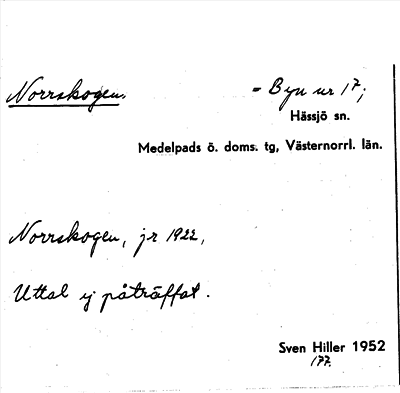 Norrskogen.
= Byn nr 17;
Hässjö sn.
Medelpads ö. doms. tg, Västernorrl. län.
Norrskogen, jr 1922,
Uttal ej påträffat.
Sven Hiller 1952
177.